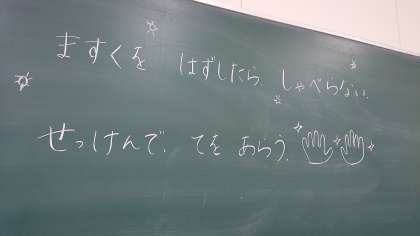 ますくを はずしたら、しゃべらない。
せっけんで、てを あらう。